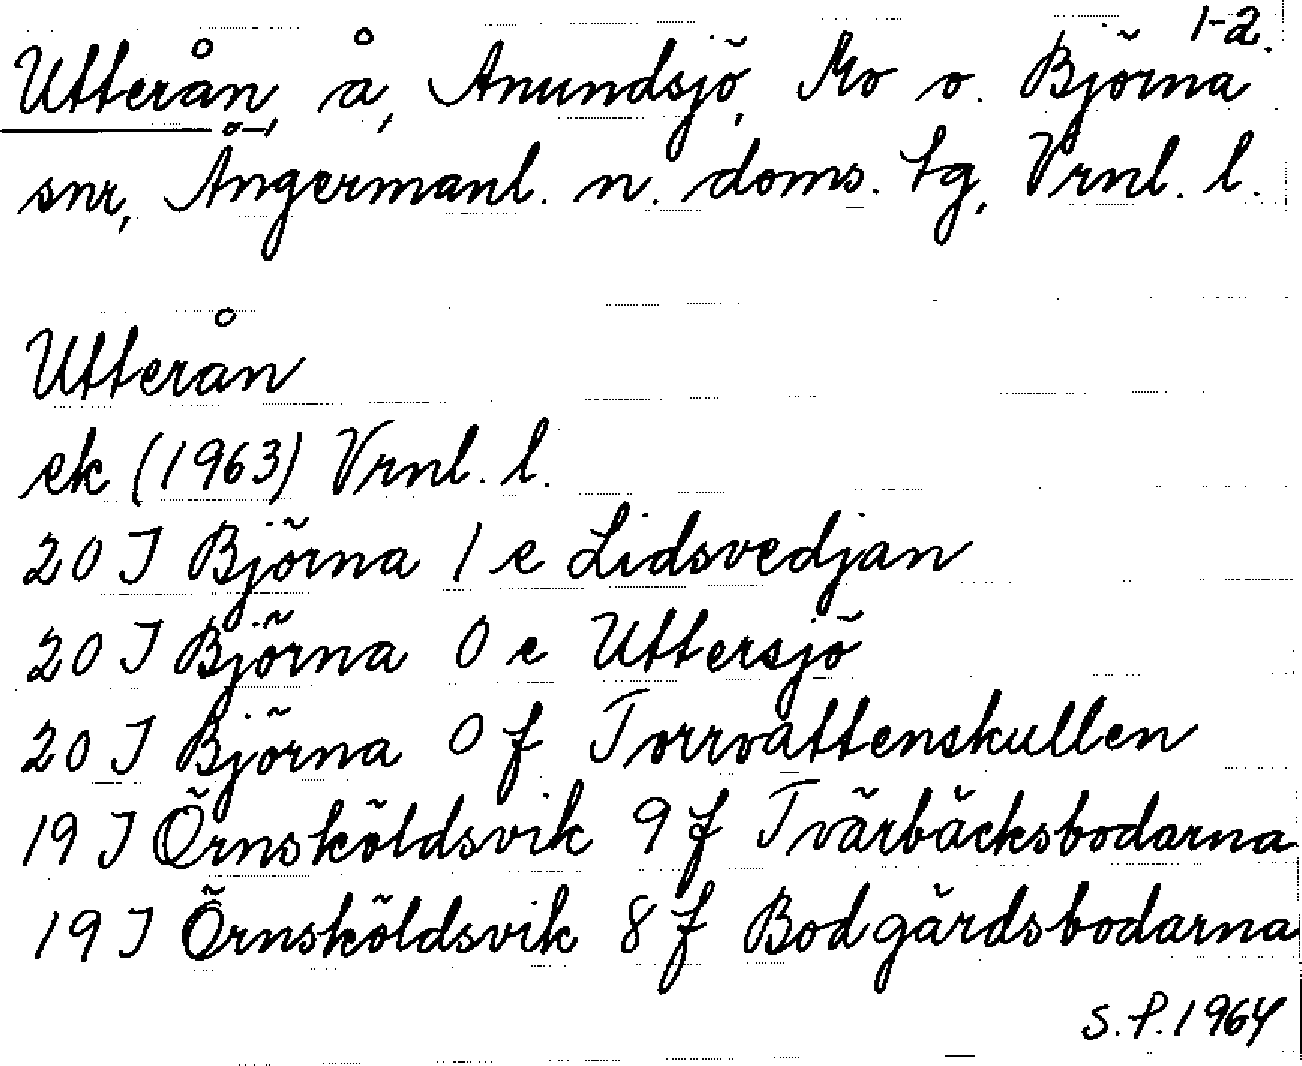 1-2.
Utterån, å, Anundsjö, Mo o. Björna
snr, Ångermanl. n. doms. tg, Vrnl. l.
Utterån
ek (1963) Vrnl. l.
20 I Björna 1 e Lidsvedjan
20 I Björna 0 e Uttersjö
20 I Björna 0 f Torrvattenskullen
19 I Örnsköldsvik 9 f Tvärbäcksbodarna
19 I Örnsköldsvik 8 f Bodgårdsbodarna
S.P. 1964